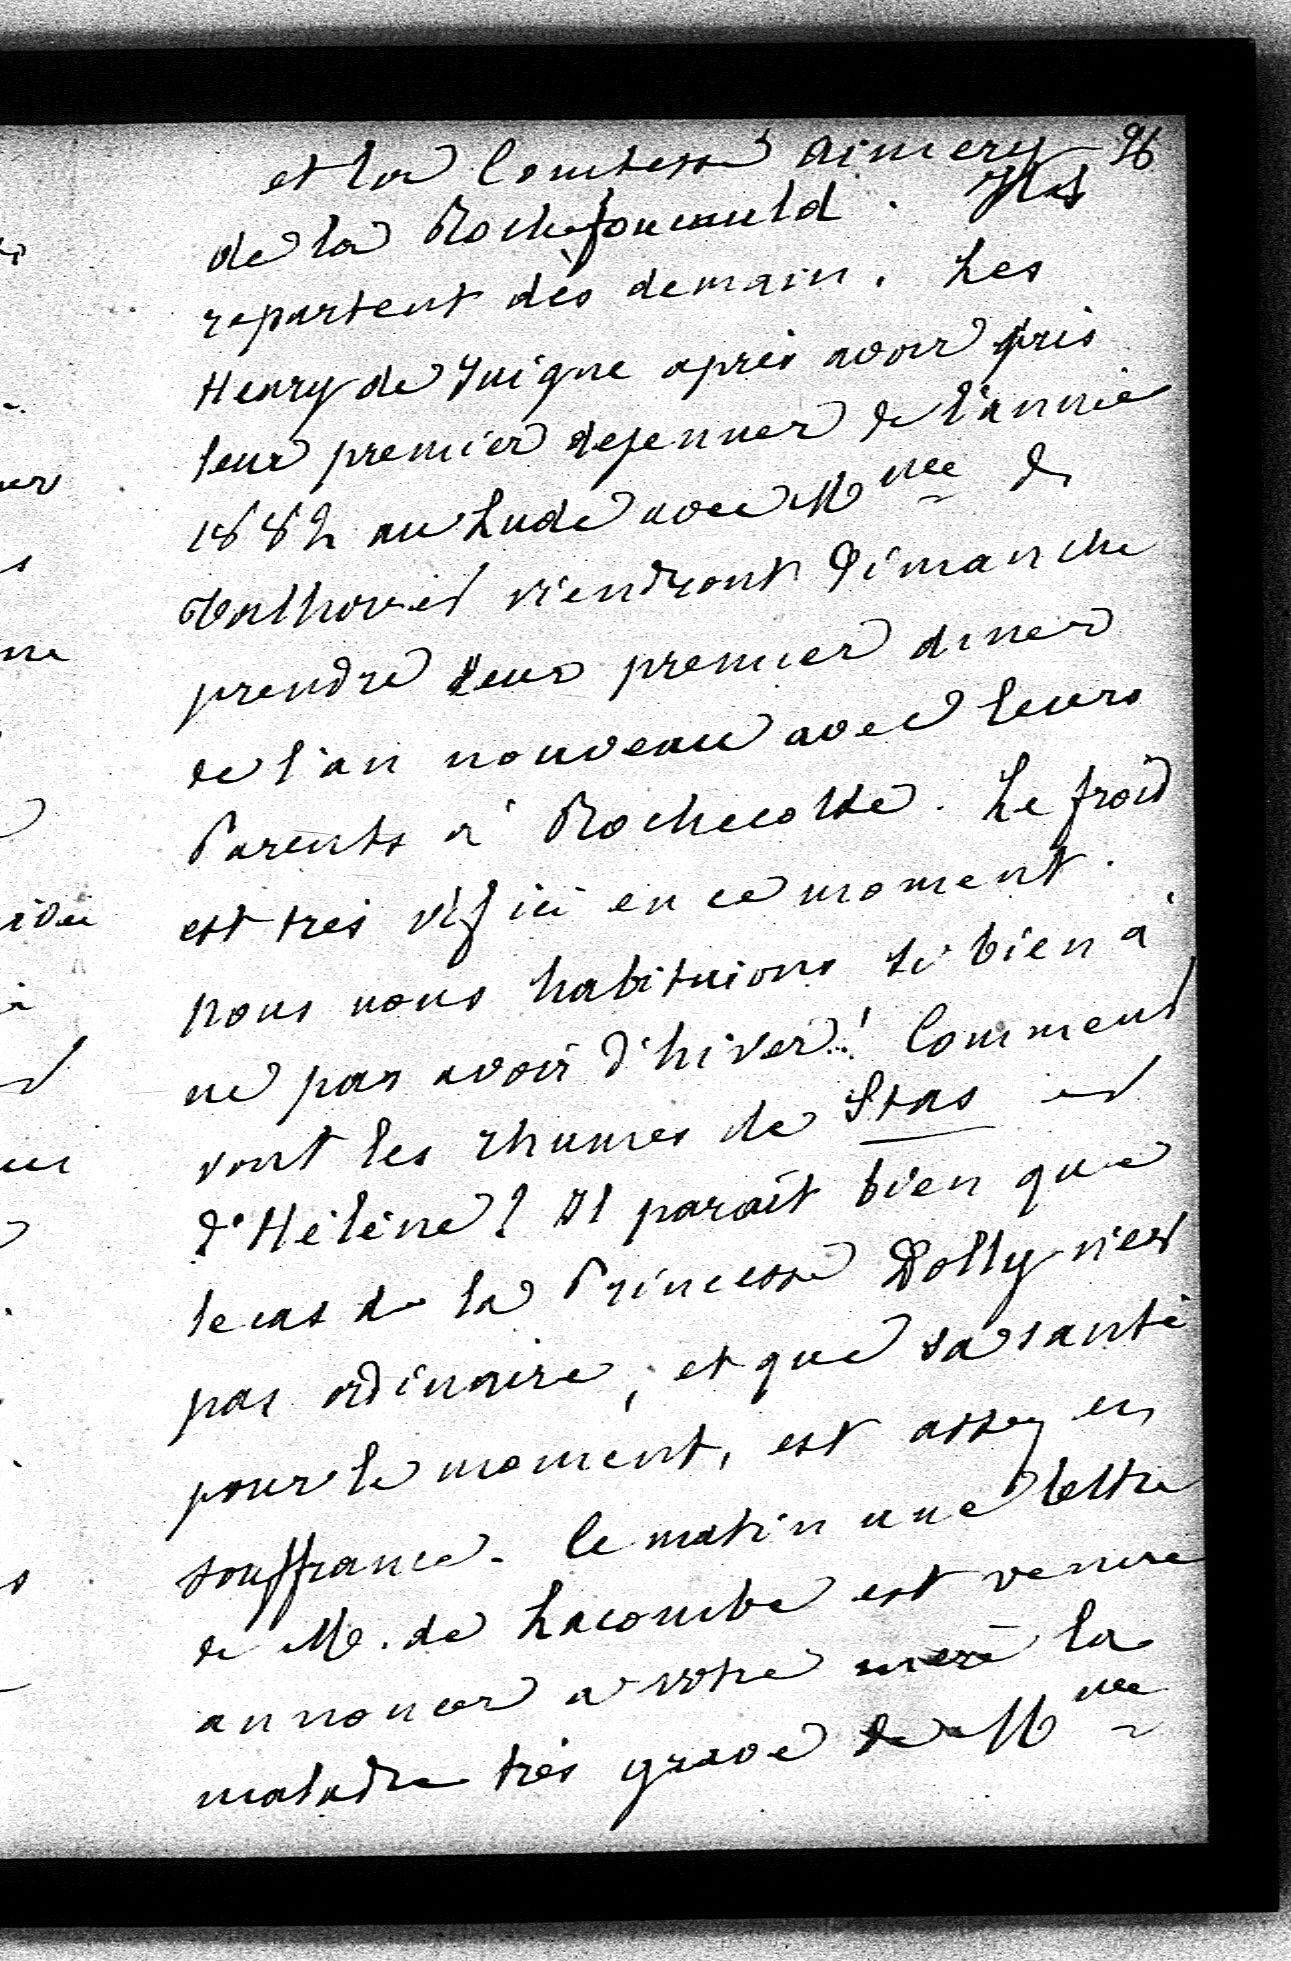 96
et la Comtesse Aimery
de la Rochefoucauld. Ils
repartent dès demain. Les
Henry de Juigne après avoir pris
leur premier dejeuner de l'année
1882 au Lude avec Mme de
viendront Dimanche
prendre leur premier diner
de l'an nouveau avec leurs
Parents à Rochecotte. Le froid
est très vif ici en ce moment.
nous nous habituions si bien à
ne pas avoir d'hiver..! Comment
vont les rhumes de Stas et
d'Hélène? Il paraît bien que
le cas de la Princesse Dolly n'est
pas ordinaire, et que sa santé
pour le moment, est assez en
souffrance. Ce matin une lettre
de M. de Lacombe est venue
annoncer a votre mere la
maladie très grave de Mme